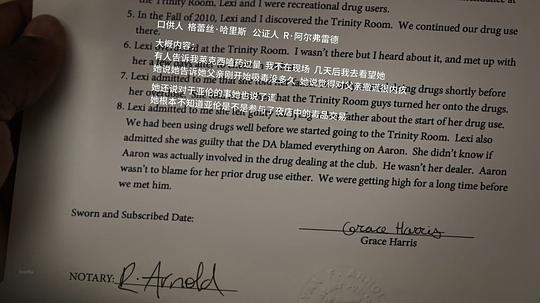 the Trinity Room, Lexi and I were recreational drug users.
5. In the Fall of 2010, Lexi and I discovered the Trinity Room. We continued our drug use
there.
口供人 格蕾丝·哈里斯 公证人 R·阿尔弗雷德
大概内容:
有人告诉我莱克西嗑药过量 我不在现场 几天后我去看望她
她说她告诉她父亲刚开始吸毒没多久 她说觉得对父亲撒谎很内疚
她还说对于亚伦的事她也说了谎
她根本不知道亚伦是不是参与了夜店中的毒品交易
6. Lexi at the Trinity Room. I wasn't there but I heard about it, and met up with
her a
7. Lexi admitted to me that she drugs shortly before
her overdose. that the Trinity Room guys turned her onto the drugs.
8. Lexi admitted to me father about the start of her drug use.
We had been using drugs well before we started going to the Trinity Room. Lexi also
admitted she was guilty that the DA blamed everything on Aaron. She didn't know if
Aaron was actually involved in the drug dealing at the club. He wasn't her dealer. Aaron
wasn't to blame for her prior drug use either. We were getting high for a long time before
we met him.
Sworn and Subscribed Date:
Grace Harris
Grace Harris
NOTARY: R. Arnold